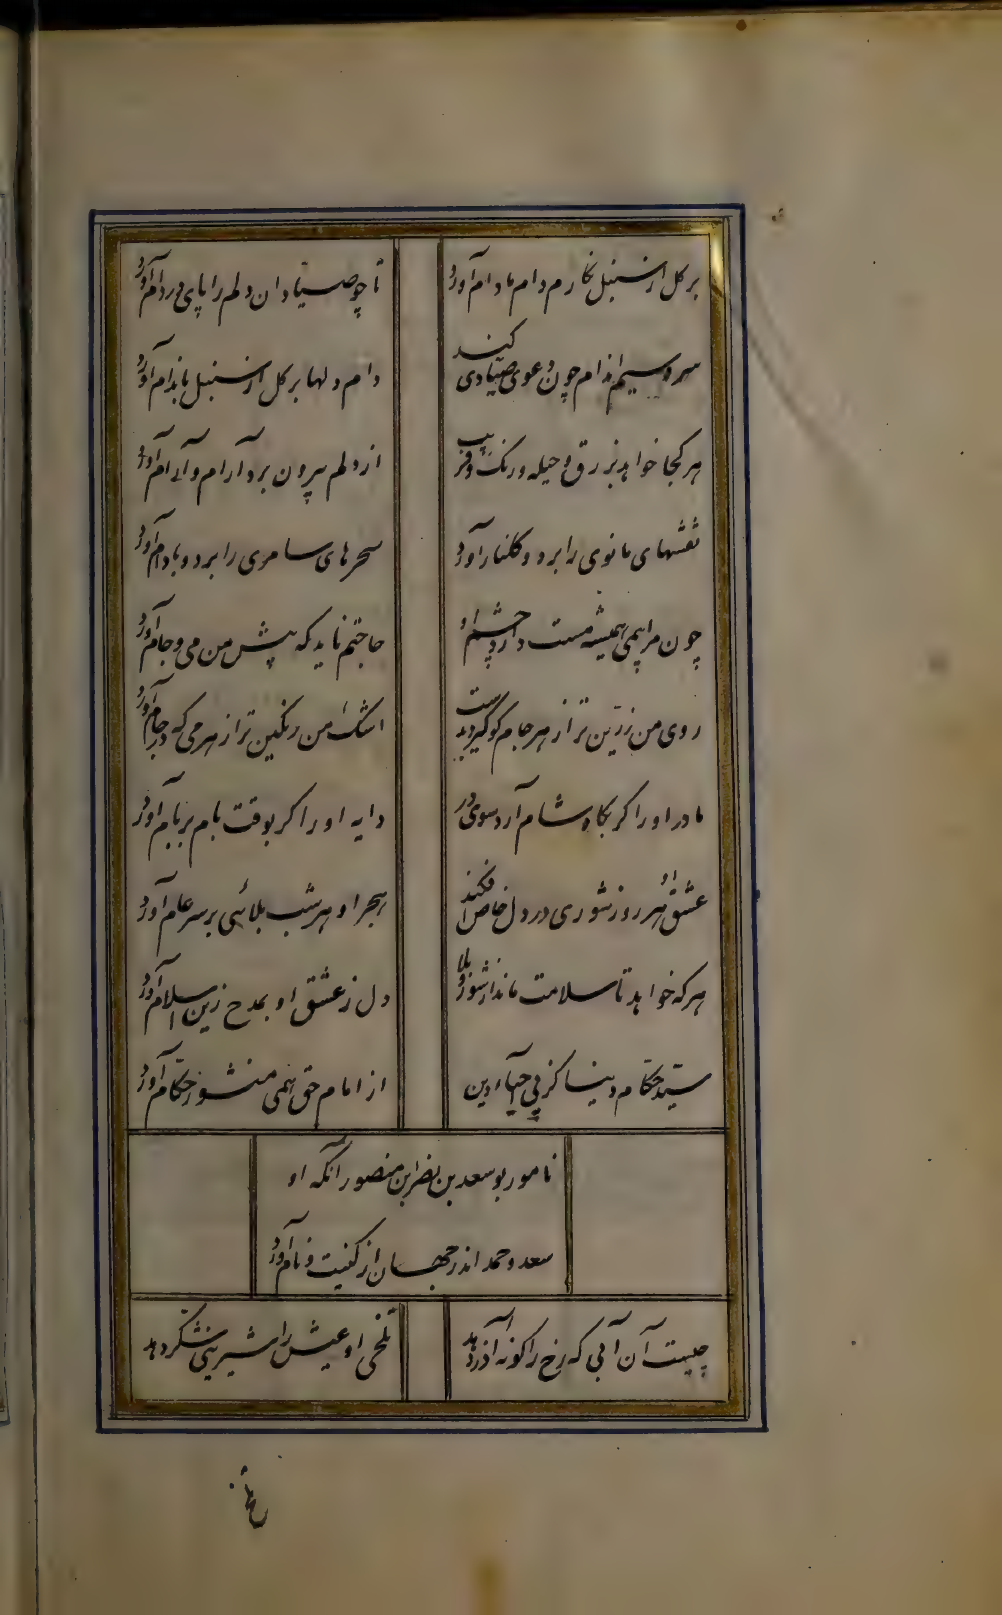 بر کل از سنبل نکارم دام ما دام آورد
تا چو صیادان دلم را پای در دام آورد
سرو سیم اندام چون دعوی صیادی کند
دام دلها بر کل از سنبل باندام آورد
هر کجا خواهد بزرق و حیله و رنک و فریب
از دلم بیرون برد آرام و آرام آورد
نقشهای مانوی را برد و کلنار آورد
سحرهای سامری را برد و بادام آورد
چون مرا بی می همیشه مست دارد چشم او
حاجتم ناید که پیش من می و جام آورد
روی من زرین تر از هر جام کو کیرد بدست
اشک من رنکین تر از هر می که در جام آورد
مادر او را کر بکاه شام آرد سوی در
دایه او را کر بوقت بام بر بام آورد
عشق او هر روز شوری در دل خاص افکند
هجر او هر شب بلائی بر سر عام آورد
هر که خواهد تا سلامت ماند از شور و بلا
دل ز عشق او بمدح زین اسلام آورد
سید حکام دنیا کز پی احیاء دین
از امام حق همی منشور حکام آورد
نامور بو سعد بن نصر ابن منصور آنکه او
سعد و حمد اندر جهان از کنیت و نام آورد
چیست آن آبی که رخ را کونهٔ آذر دهد
تلخی او عیش را شیرینی شکر دهد
تلخی